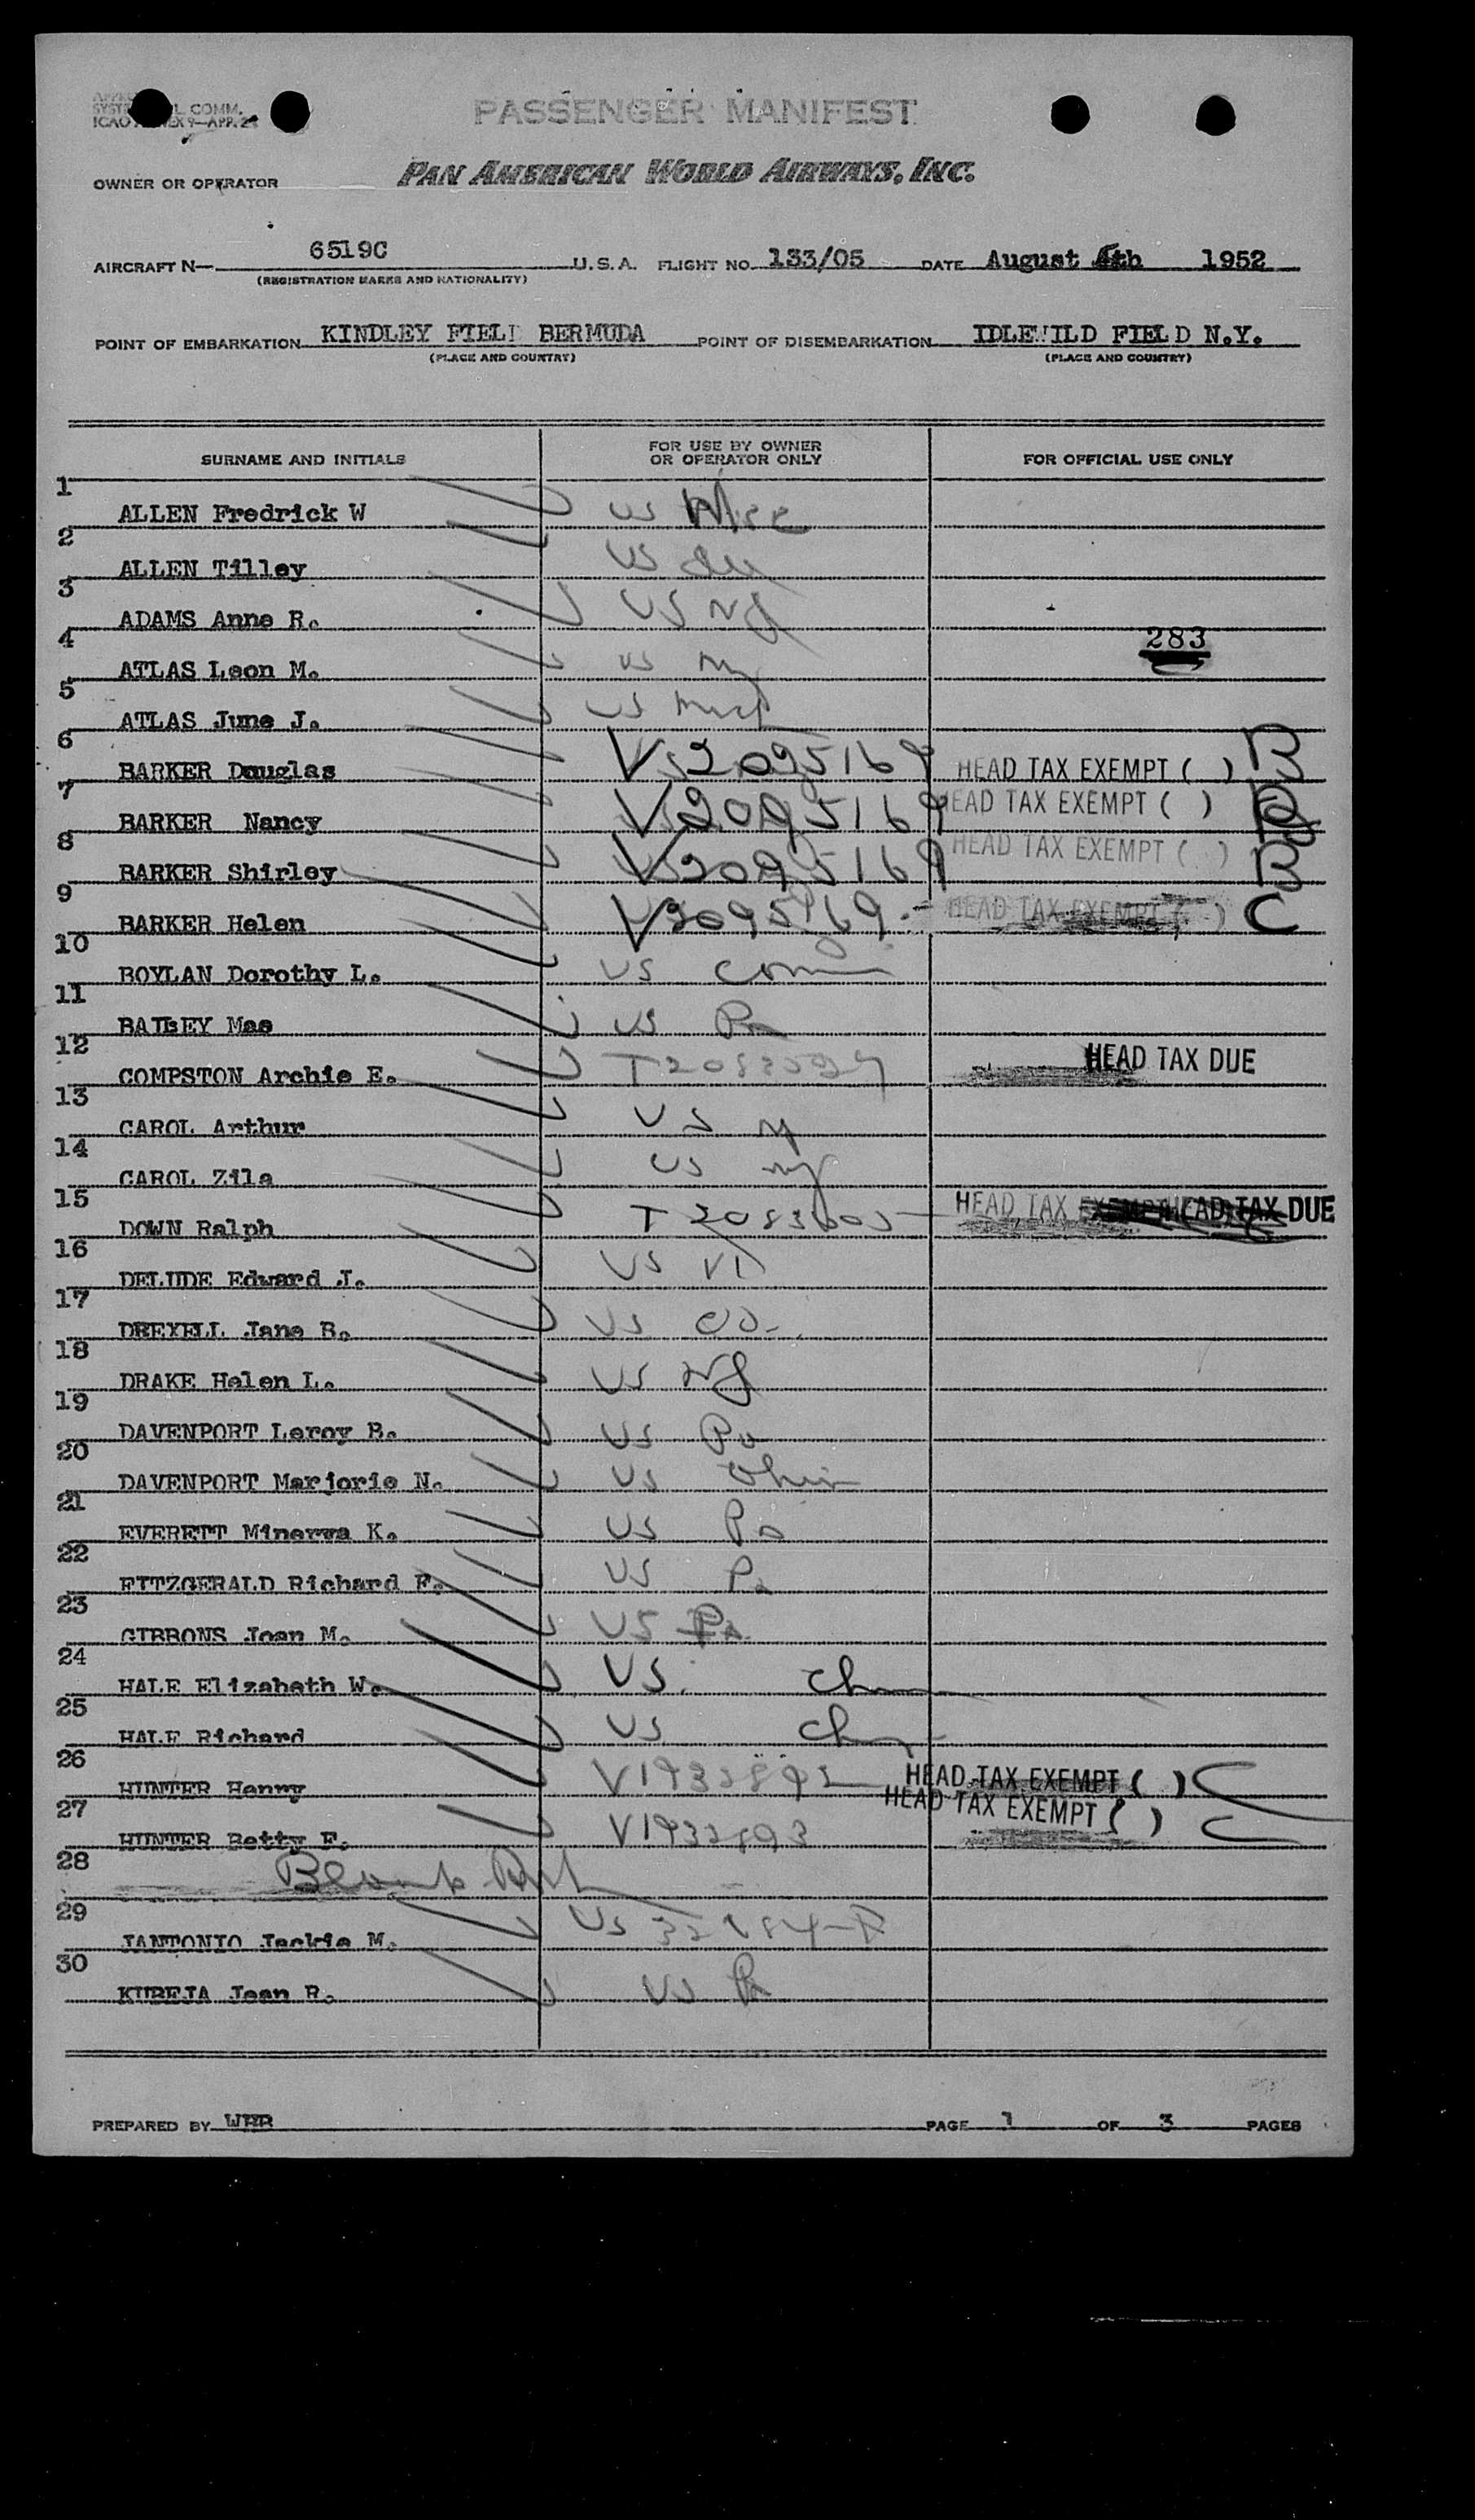 L COMM.
ICAO EX 9—APP. 2
PASSENGER MANIFEST
OWNER OR OPERATOR PAN AMERICAN WORLD AIRWAYS, INC.
AIRCRAFT N— 6519C U.S.A. FLIGHT NO. 133/05 DATE August 1952
(REGISTRATION MARKS AND NATIONALITY)
POINT OF EMBARKATION KINDLEY FIELD BERMUDA POINT OF DISEMBARKATION IDLEWILD FIELD N.Y.
(PLACE AND COUNTRY) (PLACE AND COUNTRY)
SURNAME AND INITIALS FOR USE BY OWNER OR OPERATOR ONLY FOR OFFICIAL USE ONLY
1 ALLEN Fredrick W US
2 ALLEN Tilley US
3 ADAMS Anne R. US NJ
283
4 ATLAS Leon M. US NY
5 ATLAS June J. US
6 BARKER Douglas V2095169 HEAD TAX EXEMPT ( ) B
7 BARKER Nancy V2095169 HEAD TAX EXEMPT ( ) B
8 BARKER Shirley V2095169 HEAD TAX EXEMPT ( ) B
9 BARKER Helen V2095169 HEAD TAX EXEMPT ( ) C
10 BOYLAN Dorothy L. US Conn
11 BAILEY Mae US Pa
12 COMPSTON Archie E. HEAD TAX DUE
13 CAROL Arthur US NY
14 CAROL Zila US NY
15 DOWN Ralph HEAD TAX EXEMPT HEAD TAX DUE
16 DELUDE Edward J. US VT
17 DREXELL Jane B. US
18 DRAKE Helen L. US NJ
19 DAVENPORT Leroy B. US Pa
20 DAVENPORT Marjorie N. US Ohio
21 EVERETT Minerva K. US Pa
22 FITZGERALD Richard F. US Pa
23 GIBBONS Joan M. US Pa
24 HALE Elizabeth W. US
25 HALE Richard US
26 HUNTER Henry V1932892 HEAD TAX EXEMPT ( ) C
27 HUNTER Betty F. V1932893 HEAD TAX EXEMPT ( ) C
28
29 JANTONIO Jackie M. US
30 KUBEJA Jean R. US Pa
PREPARED BY WBR PAGE 1 OF 3 PAGES